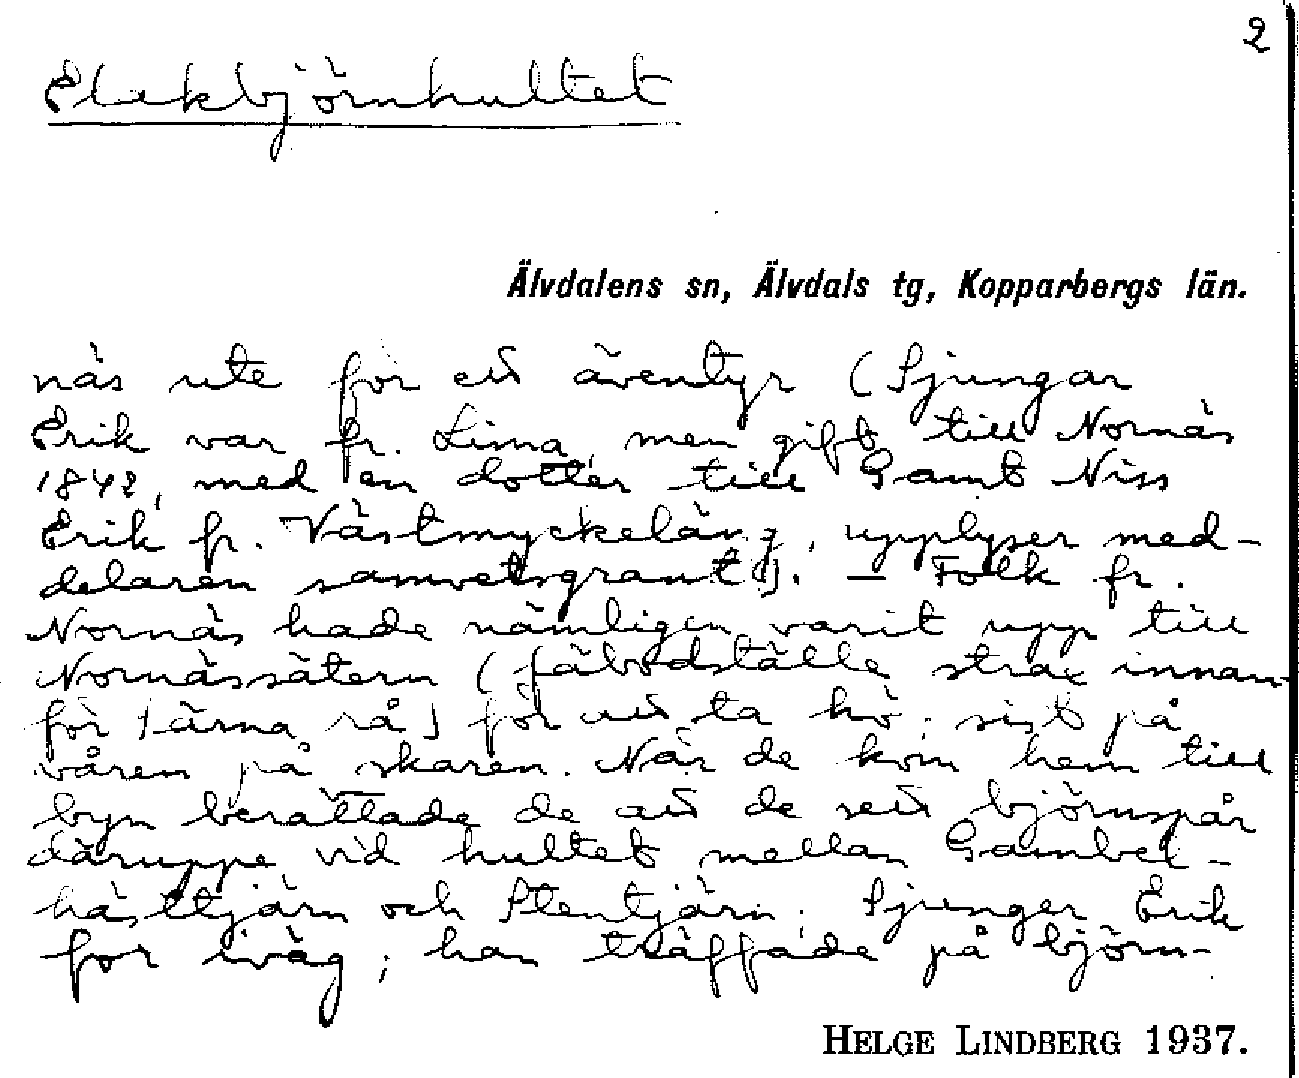 2
Elakbjörnhultet
Älvdalens sn, Älvdals tg, Kopparbergs län.
näs ute för ett äventyr (Sjungar
Erik var fr. Lima, men gift till Nornäs
1842, med en dotter till Gamt Niss
Erik fr. Västmyckeläng, upplyser med-
delaren samvetsgrant). – Folk fr.
Nornäs hade nämligen varit upp till
Nornässätern (fäbodställe strax innan-
för Särna rå) för att ta hö, sist på
våren på skaren. När de kom hem till
byn berättade de att de sett björnspår
däruppe vid hultet mellan Gambel-
hästtjärn och Stentjärn. Sjunger Erik
for iväg; han träffade på björn-
HELGE LINDBERG 1937.